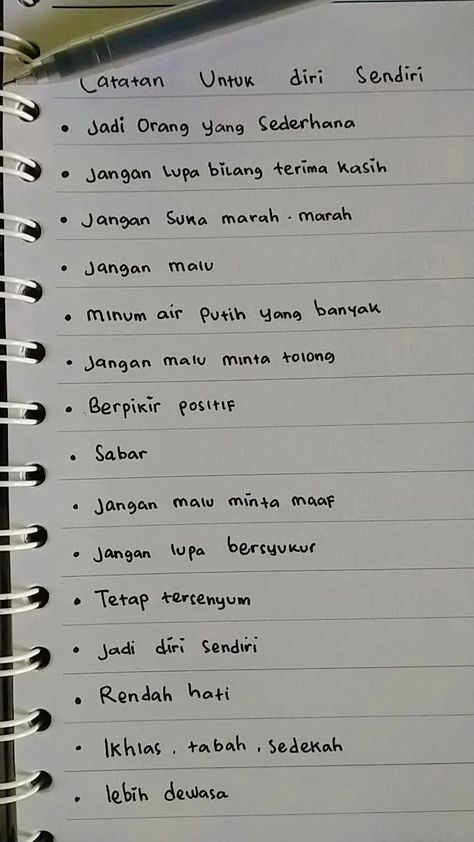 Catatan Untuk diri Sendiri
• Jadi Orang yang Sederhana
• Jangan Lupa bilang terima kasih
• Jangan Suka marah - marah
• Jangan malu
• Minum air Putih yang banyak
• Jangan malu minta tolong
• Berpikir positif
• Sabar
• Jangan malu minta maaf
• Jangan lupa bersyukur
• Tetap tersenyum
• Jadi diri sendiri
• Rendah hati
• Ikhlas, tabah, sedekah
• lebih dewasa